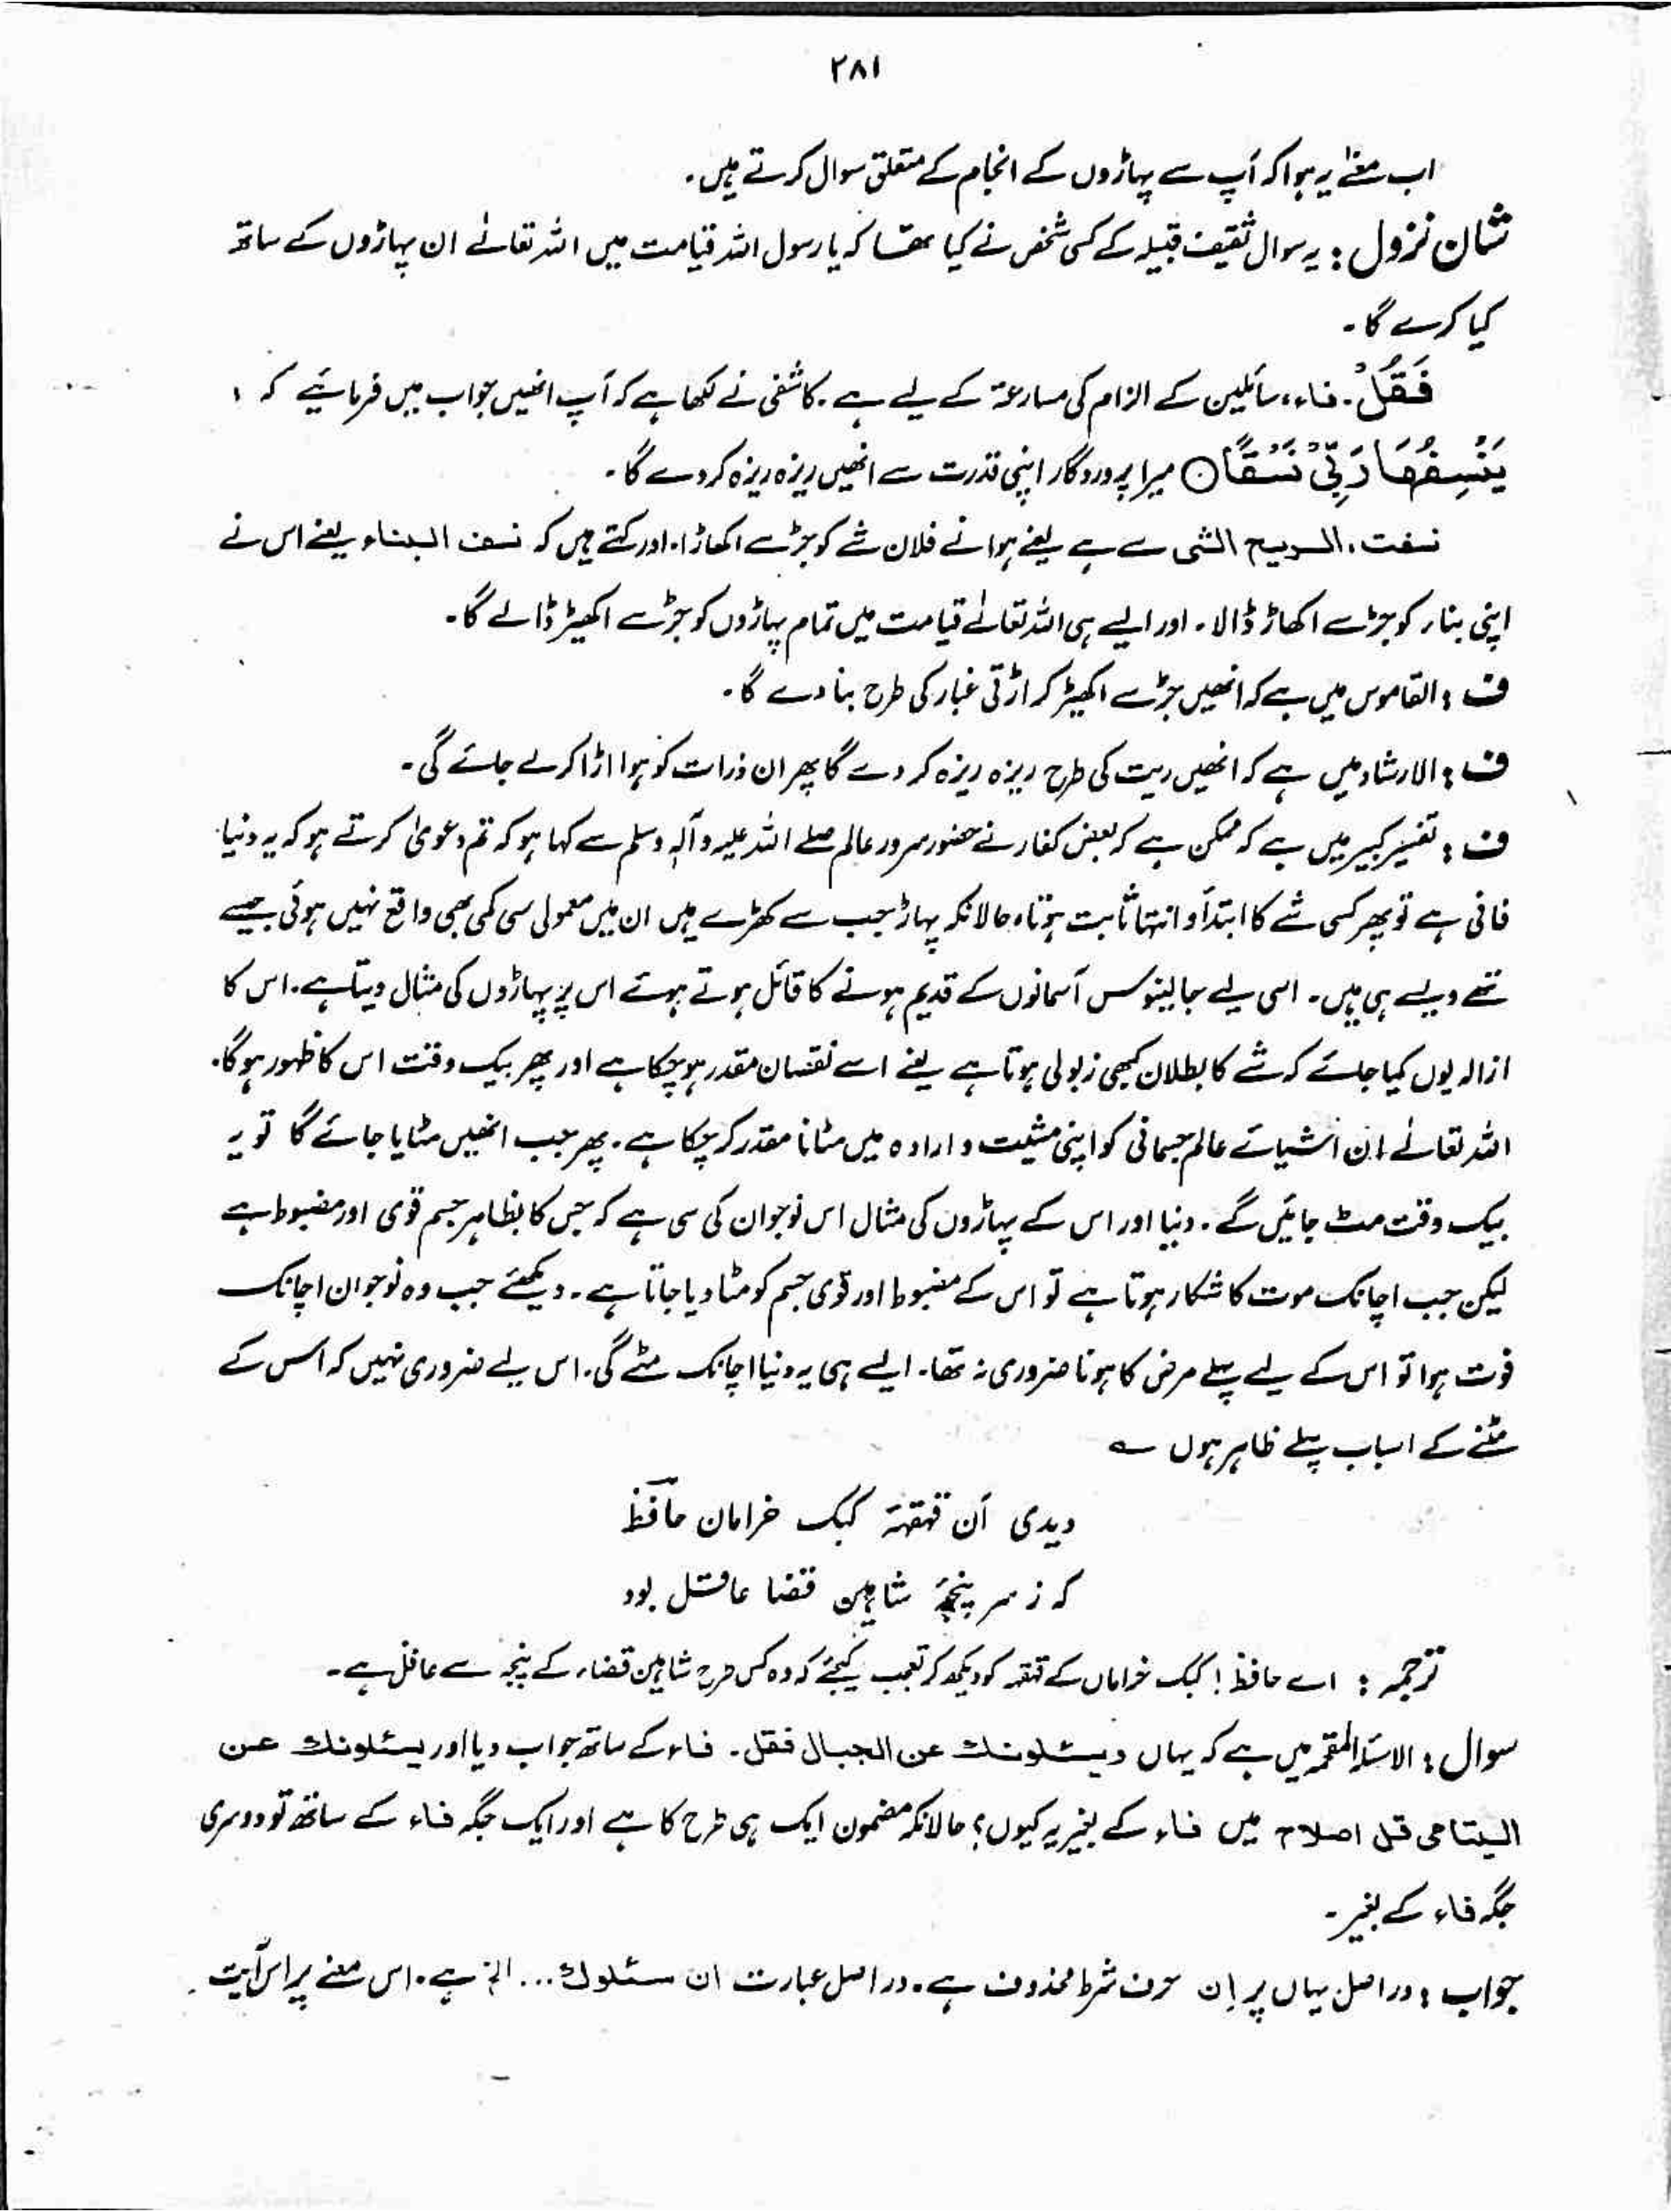 ۲۸۱
اب معنٰے یہ ہوا کہ آپ سے پہاڑوں کے انجام کے متعلق سوال کرتے ہیں۔
شان نزول : یہ سوال ثقیف قبیلہ کے کسی شخص نے کیا تھا کہ یا رسول اللہ قیامت میں اللہ تعالےٰ ان پہاڑوں کے ساتھ
کیا کرے گا ۔
فَقُلْ ۔ فاء، سائلین کے الزام کی مسارعۃ کے لیے ہے ۔ کاشفی نے لکھا ہے کہ آپ انھیں جواب میں فرمائیے کہ :
يَنْسِفُهَا رَبِّيْ نَسْفًا ○ میرا پروردگار اپنی قدرت سے انھیں ریزہ ریزہ کر دے گا ۔
نسفت ، الریح الشی سے ہے یعنے ہوا نے فلان شے کو جڑ سے اکھاڑا ، اور کہتے ہیں کہ نسف البناء یعنے اس نے
اپنی بناء کو جڑ سے اکھاڑ ڈالا ۔ اور ایسے ہی اللہ تعالےٰ قیامت میں تمام پہاڑوں کو جڑ سے اکھیڑ ڈالے گا ۔
ف : القاموس میں ہے کہ انھیں جڑ سے اکھیڑ کر اڑتی غبار کی طرح بنا دے گا ۔
ف : الارشاد میں ہے کہ انھیں ریت کی طرح ریزہ ریزہ کر دے گا پھر ان ذرات کو ہوا اڑا کر لے جائے گی ۔
ف : تفسیر کبیر میں ہے کہ ممکن ہے کہ بعض کفار نے حضور سرور عالم صلے اللہ علیہ و آلہٖ وسلم سے کہا ہو کہ تم دعویٰ کرتے ہو کہ یہ دنیا
فانی ہے تو پھر کسی شے کا ابتدأ و انتہا ثابت ہوتا ، حالانکہ پہاڑ جب سے کھڑے ہیں ان میں معمولی سی کمی بھی واقع نہیں ہوئی جیسے
تھے ویسے ہی ہیں ۔ اسی لیے جالینوس آسمانوں کے قدیم ہونے کا قائل ہوتے ہوئے اس پر پہاڑوں کی مثال دیتا ہے ۔ اس کا
ازالہ یوں کیا جائے کہ شے کا بطلان کبھی زبولی ہوتا ہے یعنے اسے نقصان مقدر ہو چکا ہے اور پھر بیک وقت اس کا ظہور ہوگا ۔
اللہ تعالےٰ ان اشیائے عالم جسمانی کو اپنی مشیت و ارادہ میں مٹانا مقدر کر چکا ہے ۔ پھر جب انھیں مٹایا جائے گا تو یہ
بیک وقت مٹ جائیں گے ۔ دنیا اور اس کے پہاڑوں کی مثال اس نوجوان کی سی ہے کہ جس کا بظاہر جسم قوی اور مضبوط ہے
لیکن جب اچانک موت کا شکار ہوتا ہے تو اس کے مضبوط اور قوی جسم کو مٹا دیا جاتا ہے ۔ دیکھئے جب وہ نوجوان اچانک
فوت ہوا تو اس کے لیے پہلے مرض کا ہونا ضروری نہ تھا ۔ ایسے ہی یہ دنیا اچانک مٹے گی ۔ اس لیے ضروری نہیں کہ اس کے
مٹنے کے اسباب پہلے ظاہر ہوں ؎
دیدی آن قہقہۂ کبک خرامان حافظؔ
کہ ز سر پنجۂ شاہین قضا غافل بود
ترجمہ : اے حافظ ! کبک خراماں کے قہقہہ کو دیکھ کر تعجب کیجئے کہ وہ کس طرح شاہین قضاء کے پنجہ سے غافل ہے ۔
سوال : الاسئلۃ المقحمہ میں ہے کہ یہاں ویسئلونک عن الجبال فقل ۔ فاء کے ساتھ جواب دیا اور یسئلونک عن
الیتامی قل اصلاح میں فاء کے بغیر یہ کیوں ؟ حالانکہ مضمون ایک ہی طرح کا ہے اور ایک جگہ فاء کے ساتھ تو دوسری
جگہ فاء کے بغیر ۔
جواب : دراصل یہاں پر اِن حرف شرط محذوف ہے ۔ دراصل عبارت ان سئلوك ... الخ ہے ۔ اس معنے پر اس آیت